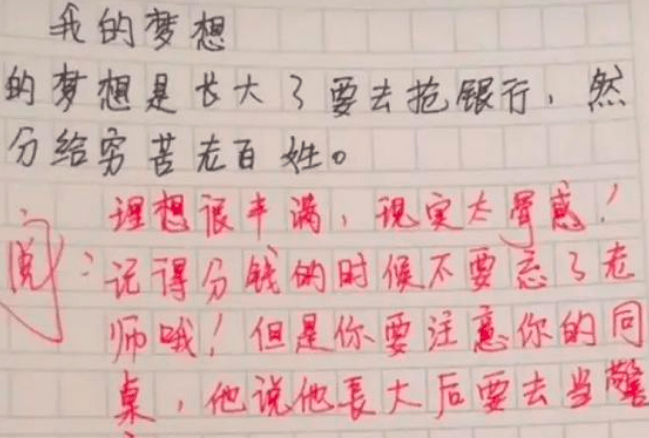 我的梦想
的梦想是长大了要去抢银行，然
分给穷苦老百姓。
阅：理想很丰满，现实太骨感！
记得分钱的时候不要忘了老
师哦！但是你要注意你的同
桌，他说他長大后要去当警